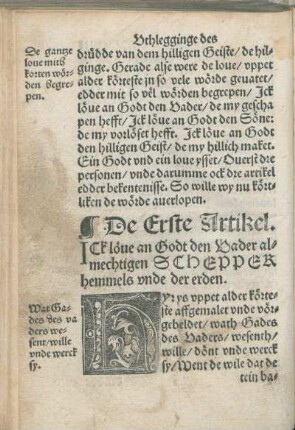 Vthlegginge des
De gantze
loue mits
korten wör-
den begre-
pen.
drüdde van dem hilligen Geiste / de hil-
ginge. Gerade alse were de loue / vppet
alder körteste jn so vele wörde geuatet /
edder mit so vel wörden begrepen / Jck
löue an Godt den Vader / de my geschа-
pen hefft / Jck löue an Godt den Söne:
de my vorlöset hefft. Jck löue an Godt
den hilligen Geist / de my hillich maket.
Ein Godt vnd ein loue ysset / Ouerst dre
personen / vnde darumme ock dre artikel
edder bekentenisse. So wille wy nu kört-
liken de wörde auerlopen.
¶ De Erste Artikel.
ICk löue an Godt den Vader al-
mechtigen SCHEPPER
hemmels vnde der erden.
Wat Ga-
des des va
ders we-
sent / wille
vnde werck
sy.
HYr ys vppet alder körte-
ste affgemalet vnde vör-
gebeldet / wath Gades
des Vaders / wesenth /
wille / dönt vnde werck
sy / Went de wile dat de
tein ba-